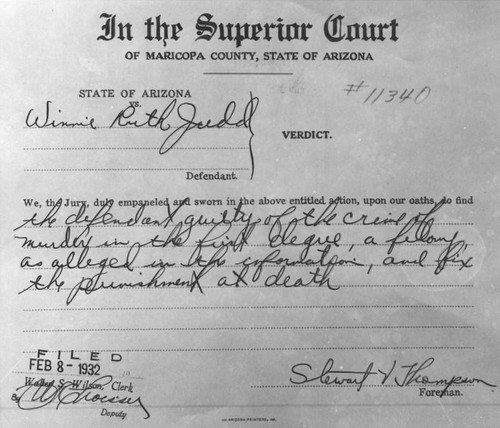 In the Superior Court
OF MARICOPA COUNTY, STATE OF ARIZONA
STATE OF ARIZONA
vs.
#11340
Winnie Ruth Judd
VERDICT.
Defendant.
We, the Jury, duly empaneled and sworn in the above entitled action, upon our oaths, do find
the defendant guilty of the crime of
murder in the first degree, a felony,
as alleged in the information, and fix
the punishment at death
FILED
FEB 8 - 1932
Walter S. Wilson, Clerk
By
Deputy
Stewart V Thompson
Foreman.